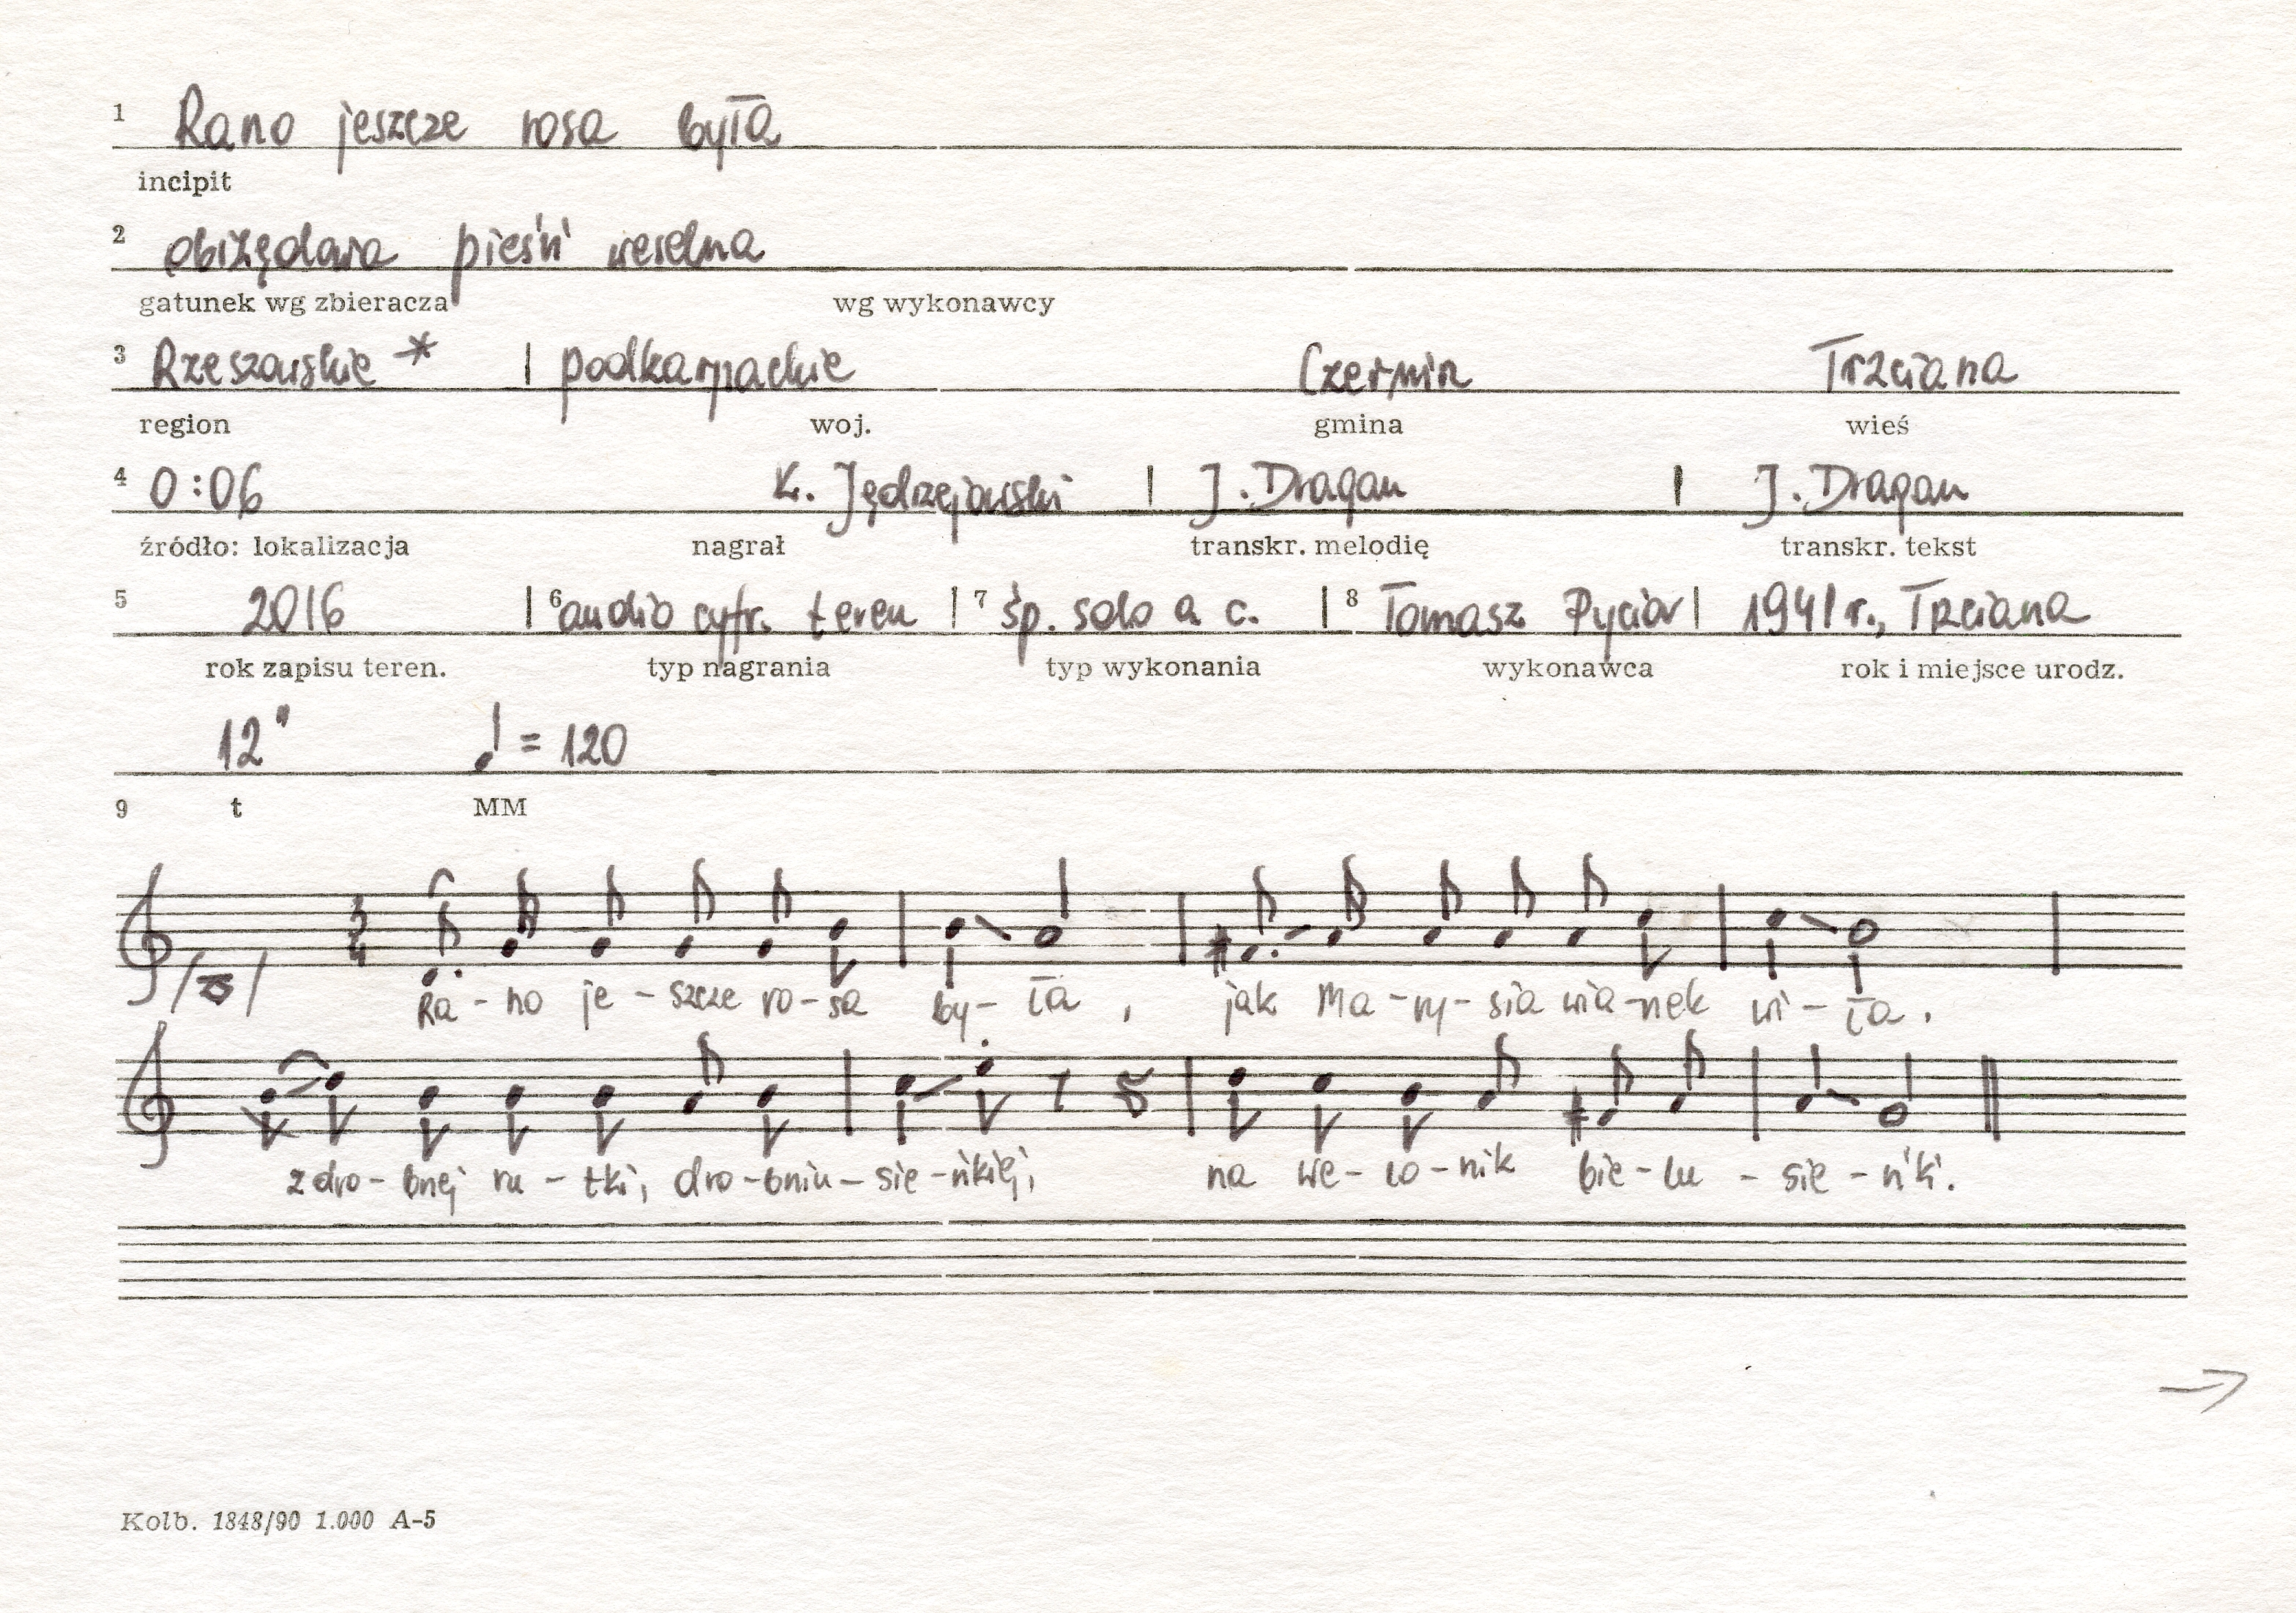 1 Rano jeszcze rosa była
incipit
2 obrzędowa pieśń weselna
gatunek wg zbieracza wg wykonawcy
3 Rzeszowskie * | podkarpackie Czermin Trzciana
region woj. gmina wieś
4 0:06 K. Jędrzejowski | J. Dragan | J. Dragan
źródło: lokalizacja nagrał transkr. melodię transkr. tekst
5 2016 | 6 audio cyfr. teren | 7 śp. solo a c. | 8 Tomasz Pycior | 1941 r., Trzciana
rok zapisu teren. typ nagrania typ wykonania wykonawca rok i miejsce urodz.
12" ♩ = 120
9 t MM
3/4
Ra - no je - szcze ro - sa by - ła , jak Ma - ry - sia wia - nek wi - ła .
z dro - bnej ru - tki, dro - bniu - sie - ńkiej, na we - lo - nik bie - lu - sie - ńki.
→
Kolb. 1848/90 1.000 A-5